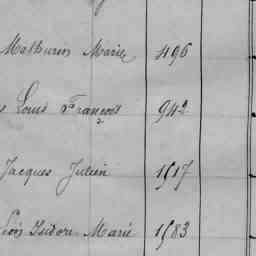 Mathurin Marie 496
Louis François 942
Jacques Julien 1517
Léon Isidore Marie 1583